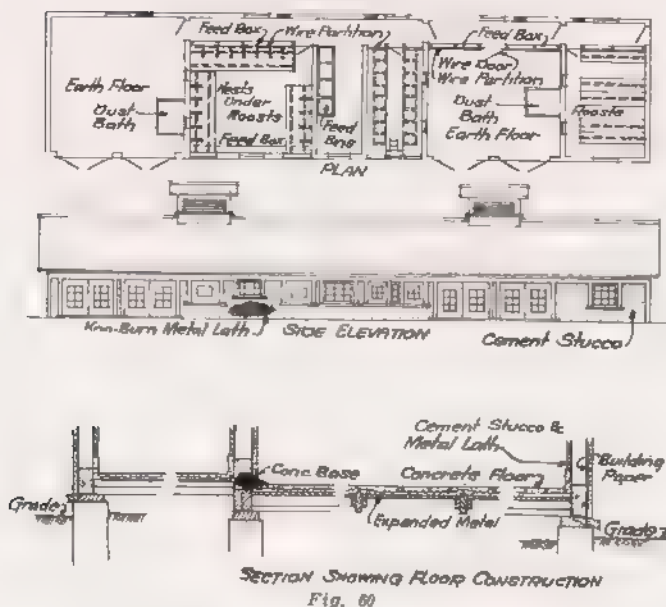 Feed Box
Wire Partition
Feed Box
Earth Floor
Dust
Bath
Nests
Under
Roosts
Feed Box
Feed
Bins
Wire Door
Wire Partition
Dust
Bath
Earth Floor
Roosts
PLAN
Kno-Burn Metal Lath
SIDE ELEVATION
Cement Stucco
Cement Stucco &
Metal Lath
Conc. Base
Concrete Floor
Building
Paper
Grade
Expanded Metal
Grade
SECTION SHOWING FLOOR CONSTRUCTION
Fig. 60